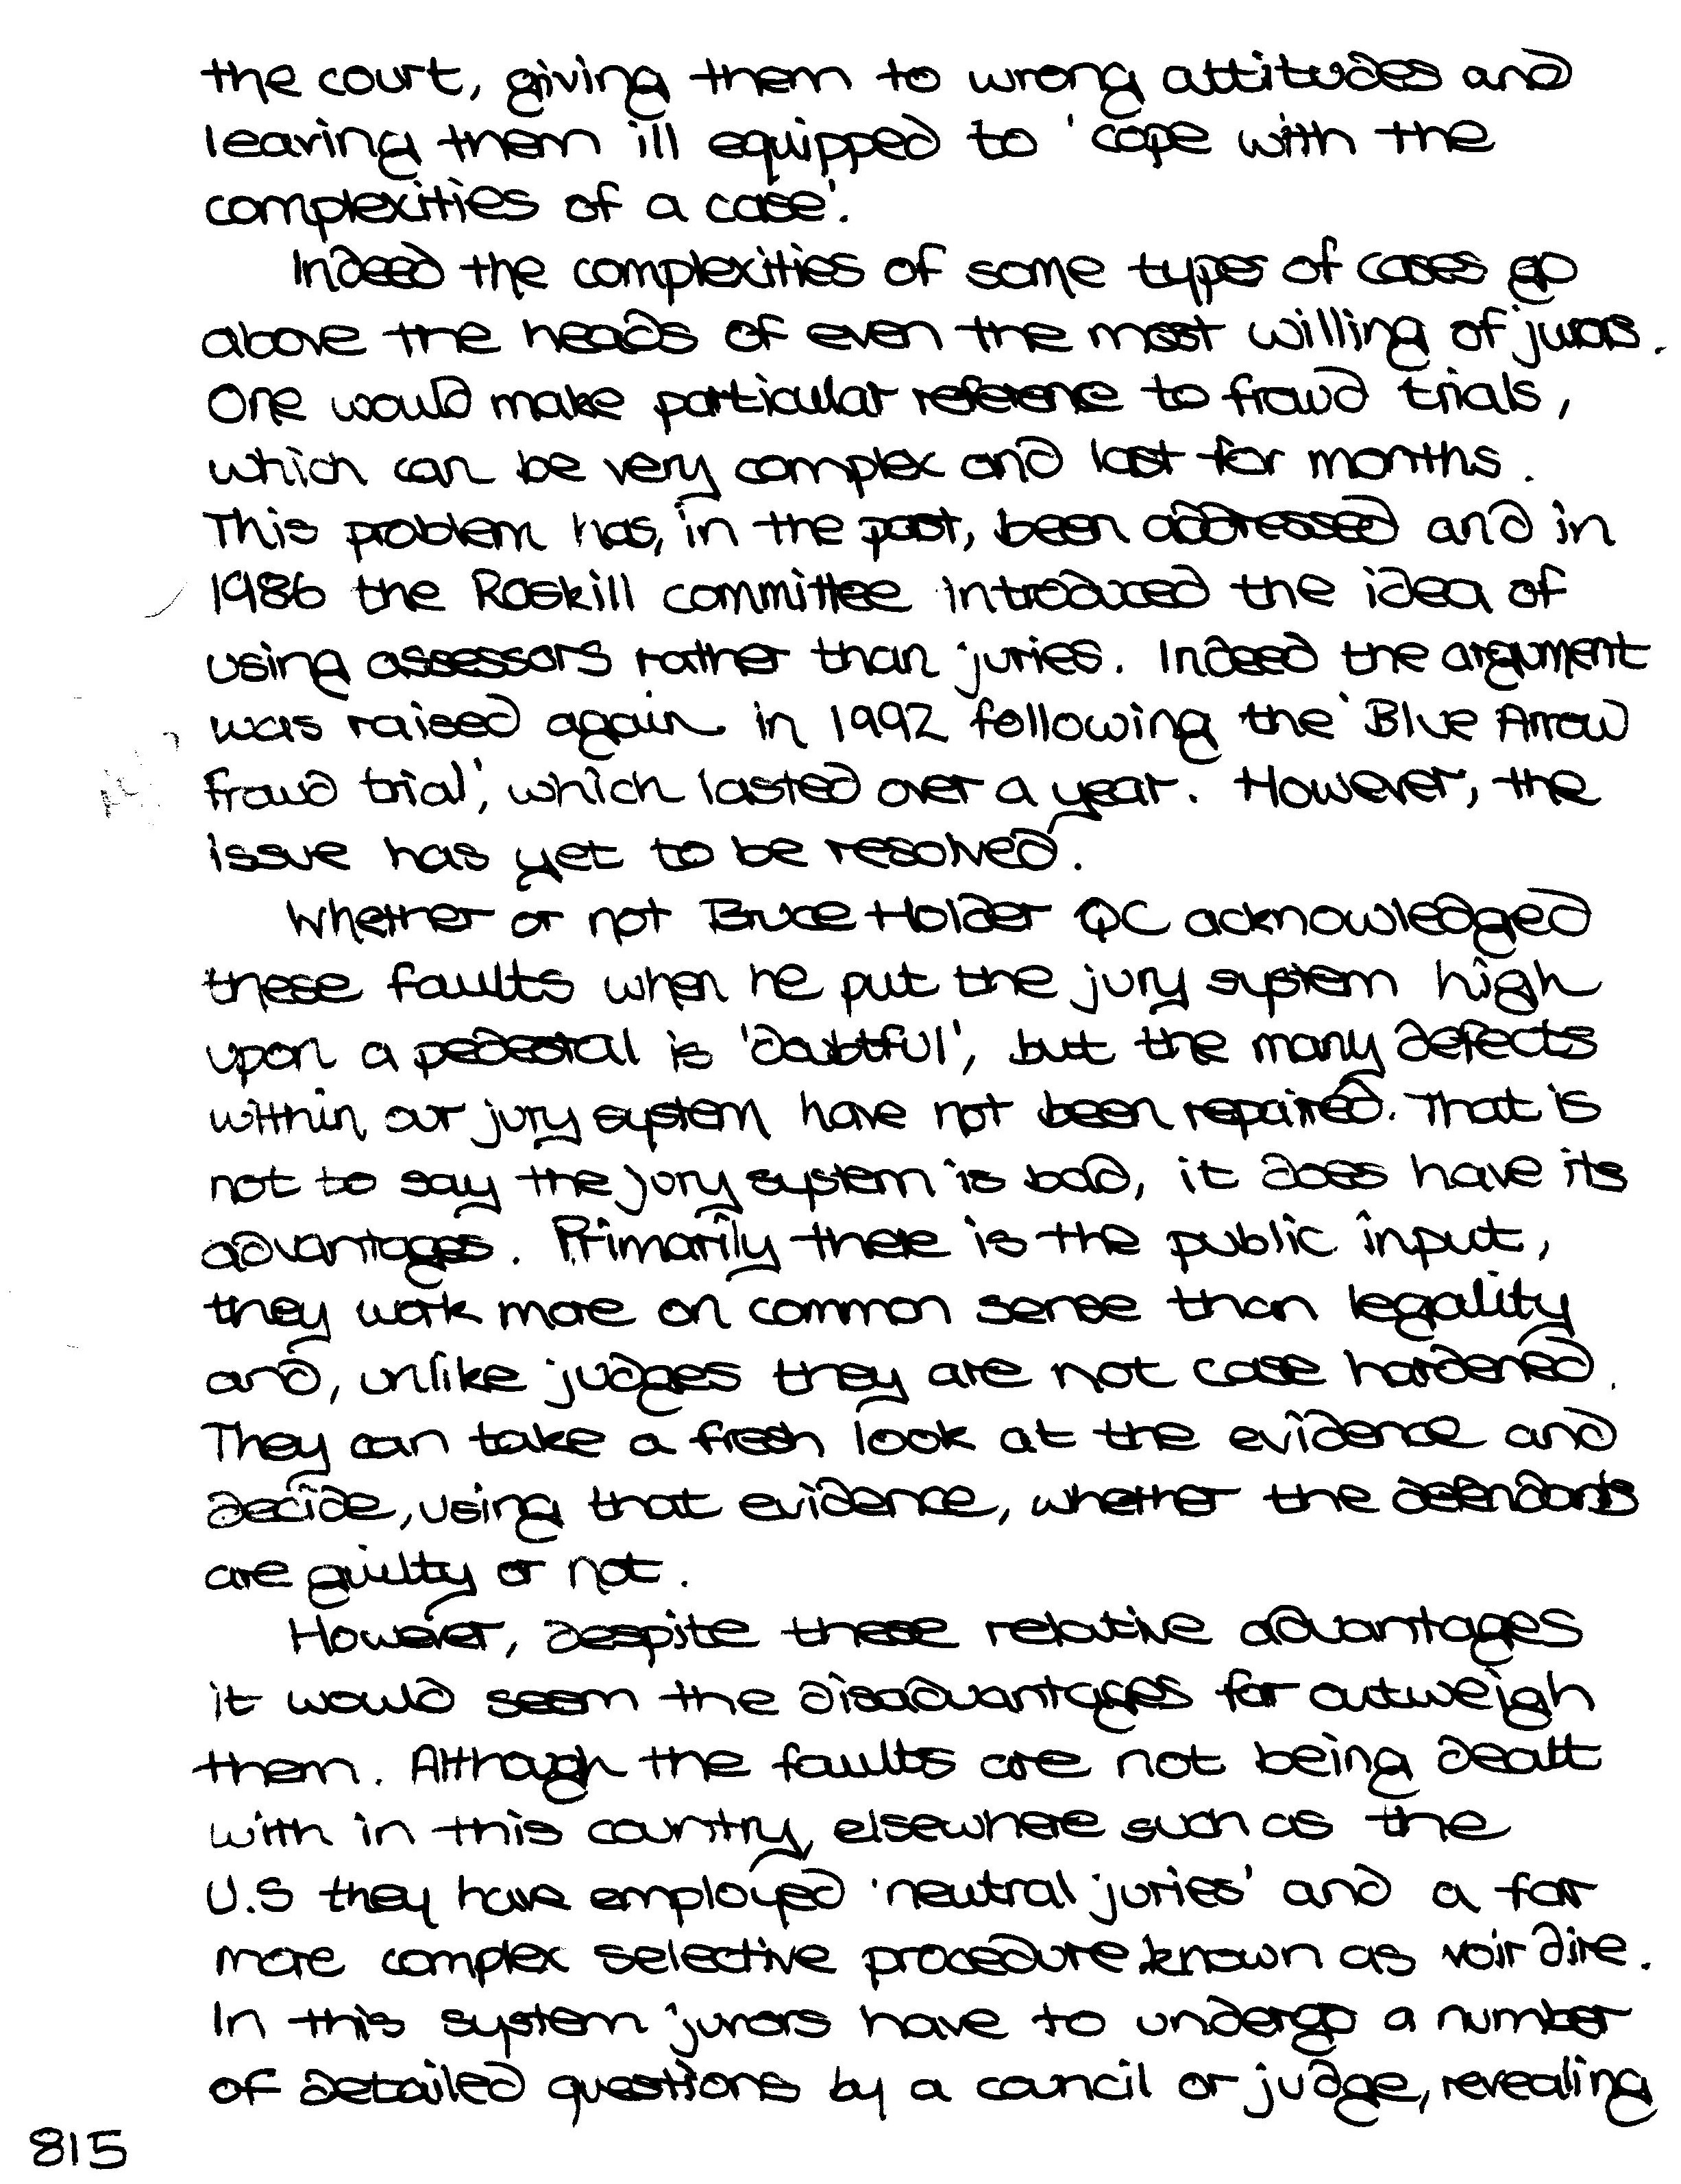 the court, giving them to wrong attitudes and
leaving them ill equipped to 'cope with the
complexities of a case'.
Indeed the complexities of some types of cases go
above the heads of even the most willing of jurors.
One would make particular reference to fraud trials,
which can be very complex and last for months.
This problem has, in the past, been addressed and in
1986 the Roskill committee introduced the idea of
using assessors rather than juries. Indeed the argument
was raised again in 1992 following the 'Blue Arrow
fraud trial', which lasted over a year. However, the
issue has yet to be resolved.
Whether or not Bruce Holder QC acknowledged
these faults when he put the jury system high
upon a pedestal is 'doubtful', but the many defects
within our jury system have not been repaired. That is
not to say the jury system is bad, it does have its
advantages. Primarily there is the public input,
they work more on common sense than legality
and, unlike judges they are not case hardened.
They can take a fresh look at the evidence and
decide, using that evidence, whether the defendants
are guilty or not.
However, despite these relative advantages
it would seem the disadvantages far outweigh
them. Although the faults are not being dealt
with in this country, elsewhere such as the
U.S they have employed 'neutral juries' and a far
more complex selective procedure known as voir dire.
In this system jurors have to undergo a number
of detailed questions by a council or judge, revealing
815